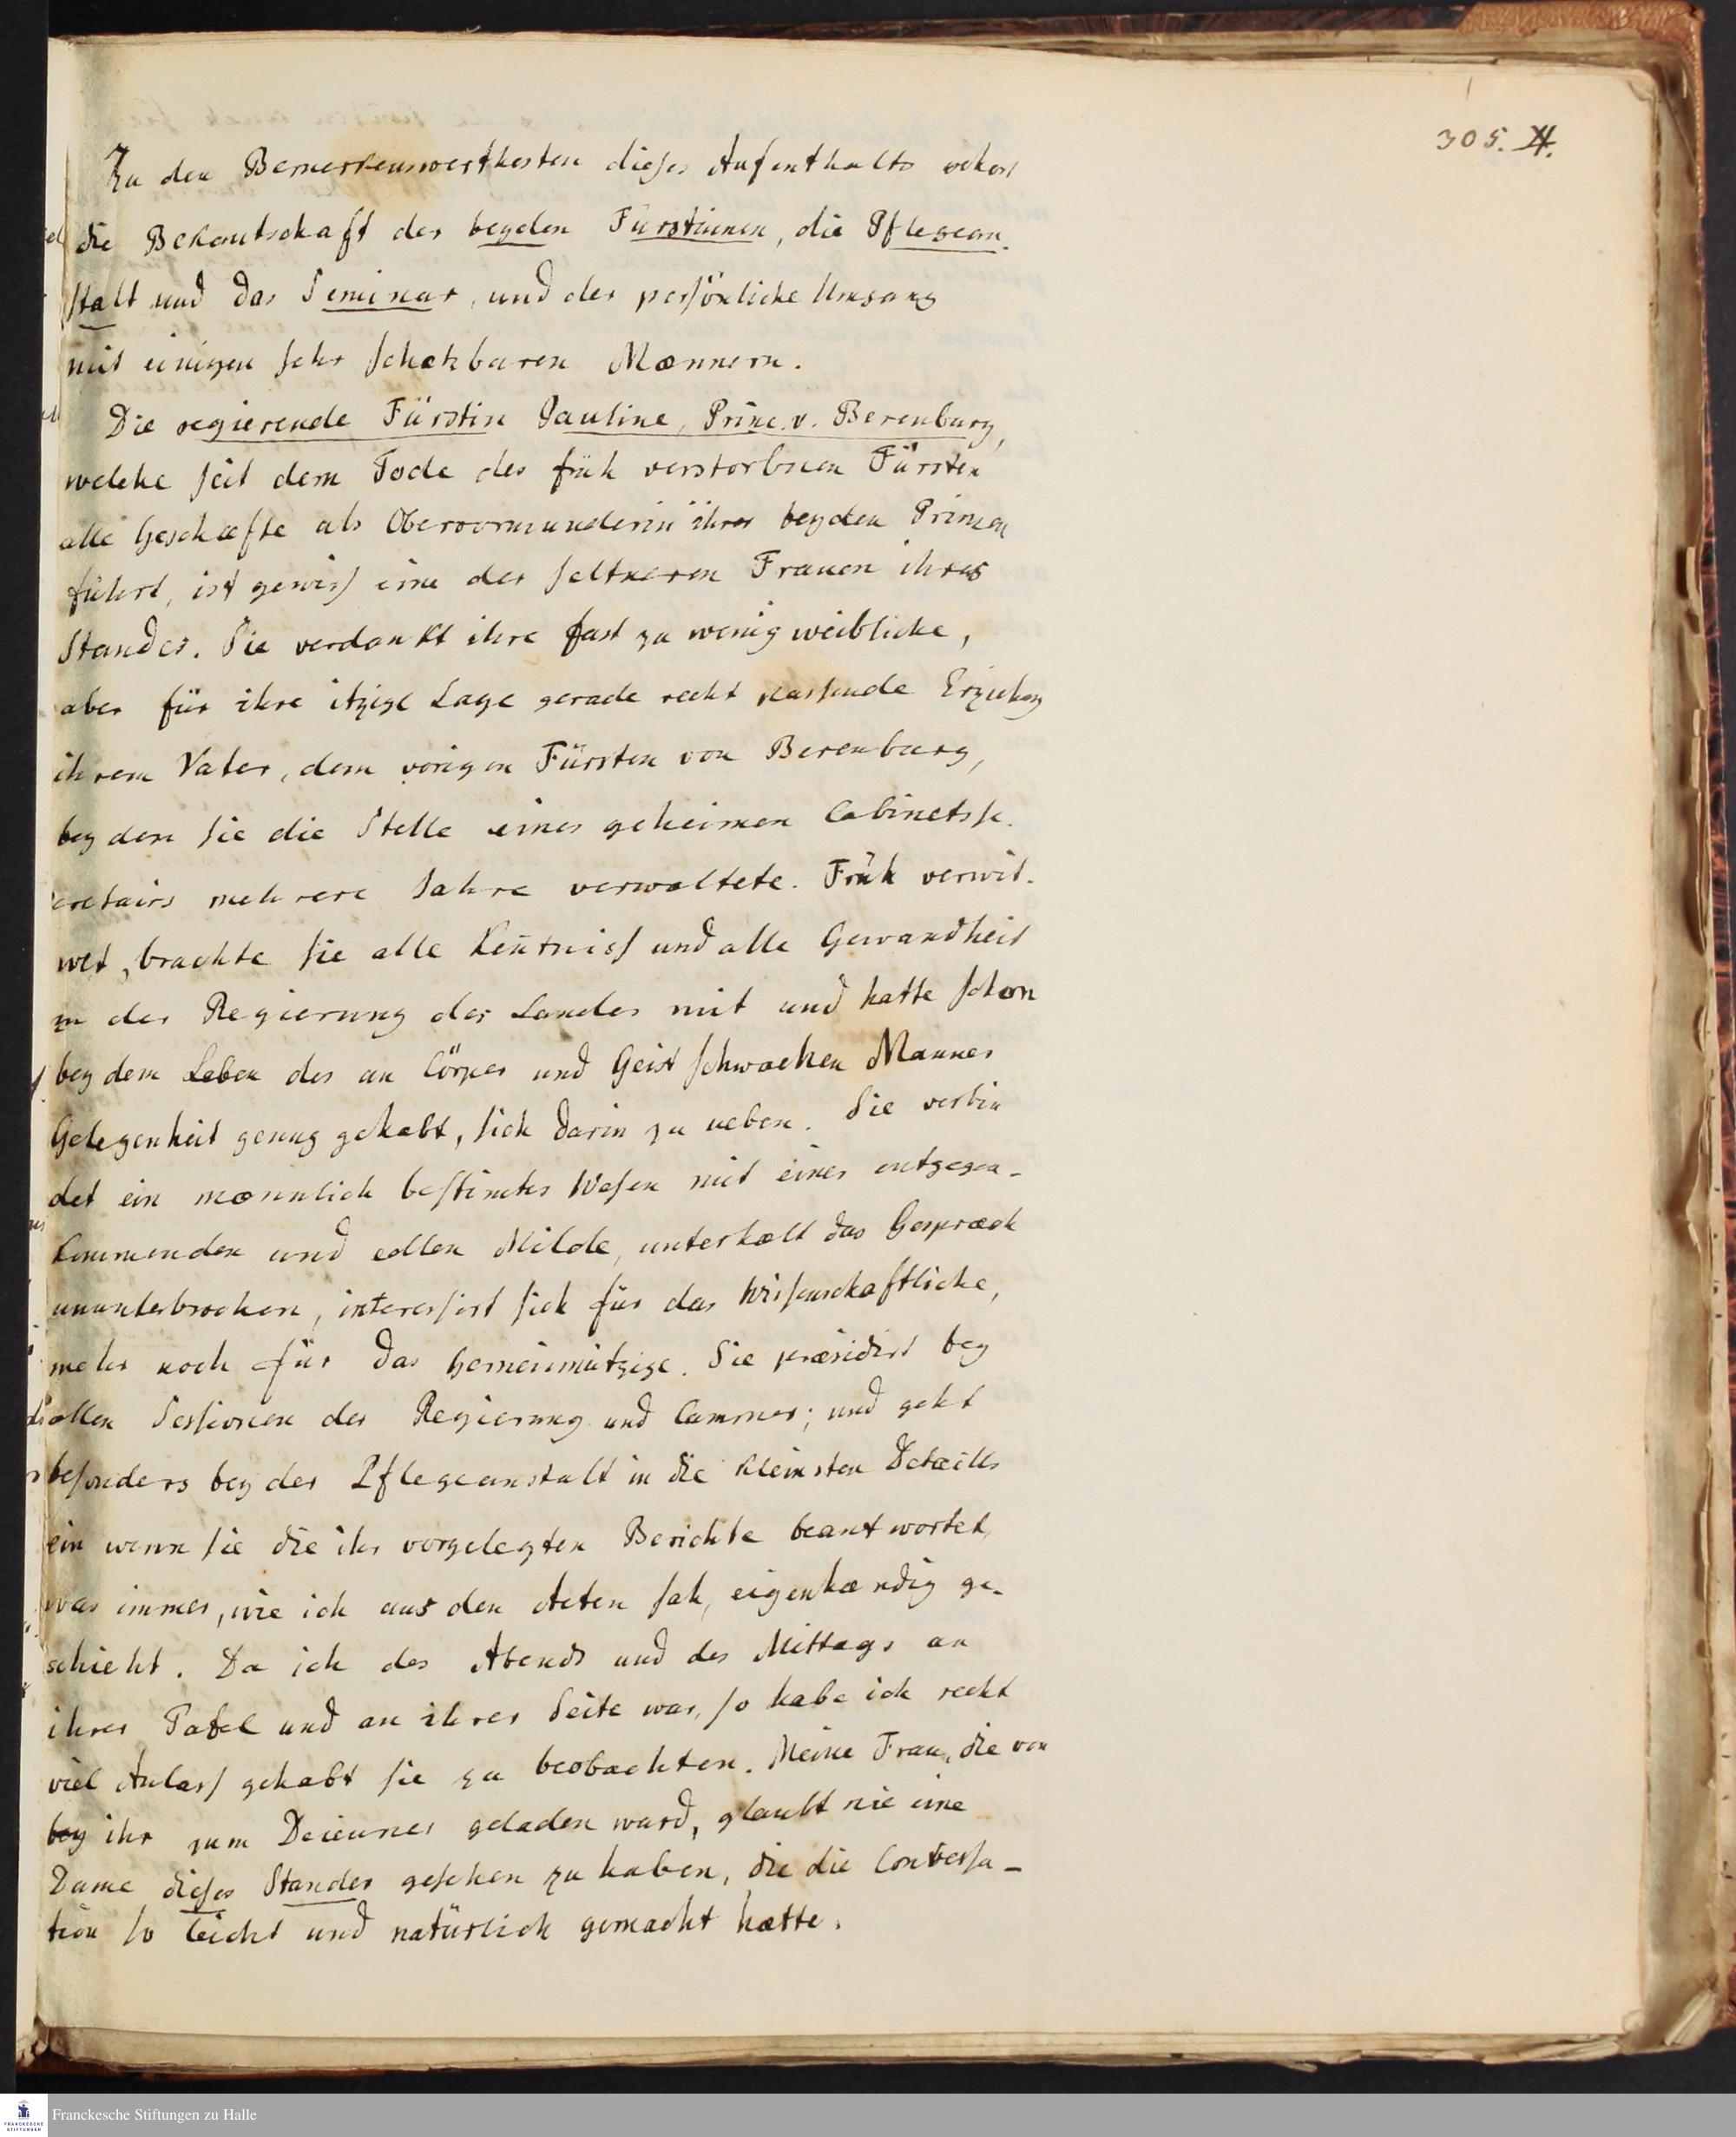 305. XI.
Zu den Bemerkenswerthesten dieses Aufenthalts gehört
die Bekantschaft der beyden Fürstinnen, die Pflegean-
stalt und das Seminar, und der persönliche Umgang
mit einigen sehr schætzbaren Mænnern.
Die regierende Fürstin Pauline, Princ. v. Berenburg,
welche seit dem Tode des früh verstorbnen Fürsten
alle Geschæfte als Obervormunderin ihrer beyden Prinzen
führt, ist gewiss eine der seltneren Frauen ihres
Standes. Sie verdankt ihre fast zu wenig weibliche,
aber für ihre itzige Lage gerade recht passende Erziehung
ihrem Vater, dem vorigen Fürsten von Berenburg,
bey dem sie die Stelle eines geheimen Cabinetsse-
cretairs mehrere Jahre verwaltete. Früh verwit-
wet, brachte sie alle Kentniss und alle Gewandheit
in der Regierung des Landes mit und hatte schon
bey dem Leben des an Cörper und Geist schwachen Mannes
Gelegenheit genug gehabt, sich darin zu ueben. Sie verbin
det ein mænnlich bestimtes Wesen mit einer entgegen-
kommenden und edlen Milde, unterhælt das Gespræch
ununterbrochen, interessirt sich für das Wissenschaftliche,
mehr noch für das Gemeinnützige. Sie præsidirt bey
allen Sessionen der Regierung und Cammer; und geht
besonders bey der Pflegeanstalt in die kleinsten Details
ein wenn sie die ihr vorgelegten Berichte beantwortet,
was immer, wie ich aus den Acten sah, eigenhændig ge-
schieht. Da ich des Abends und des Mittags an
ihrer Tafel und an ihrer Seite war, so habe ich recht
viel Anlass gehabt sie zu beobachten. Meine Frau, die von
ihr zum Dejeuner geladen ward, glaubt nie eine
Dame dieses Standes gesehen zu haben, die die Conversa-
tion so leicht und natürlich gemacht hætte.
Franckesche Stiftungen zu Halle
FRANCKESCHE
STIFTUNGEN